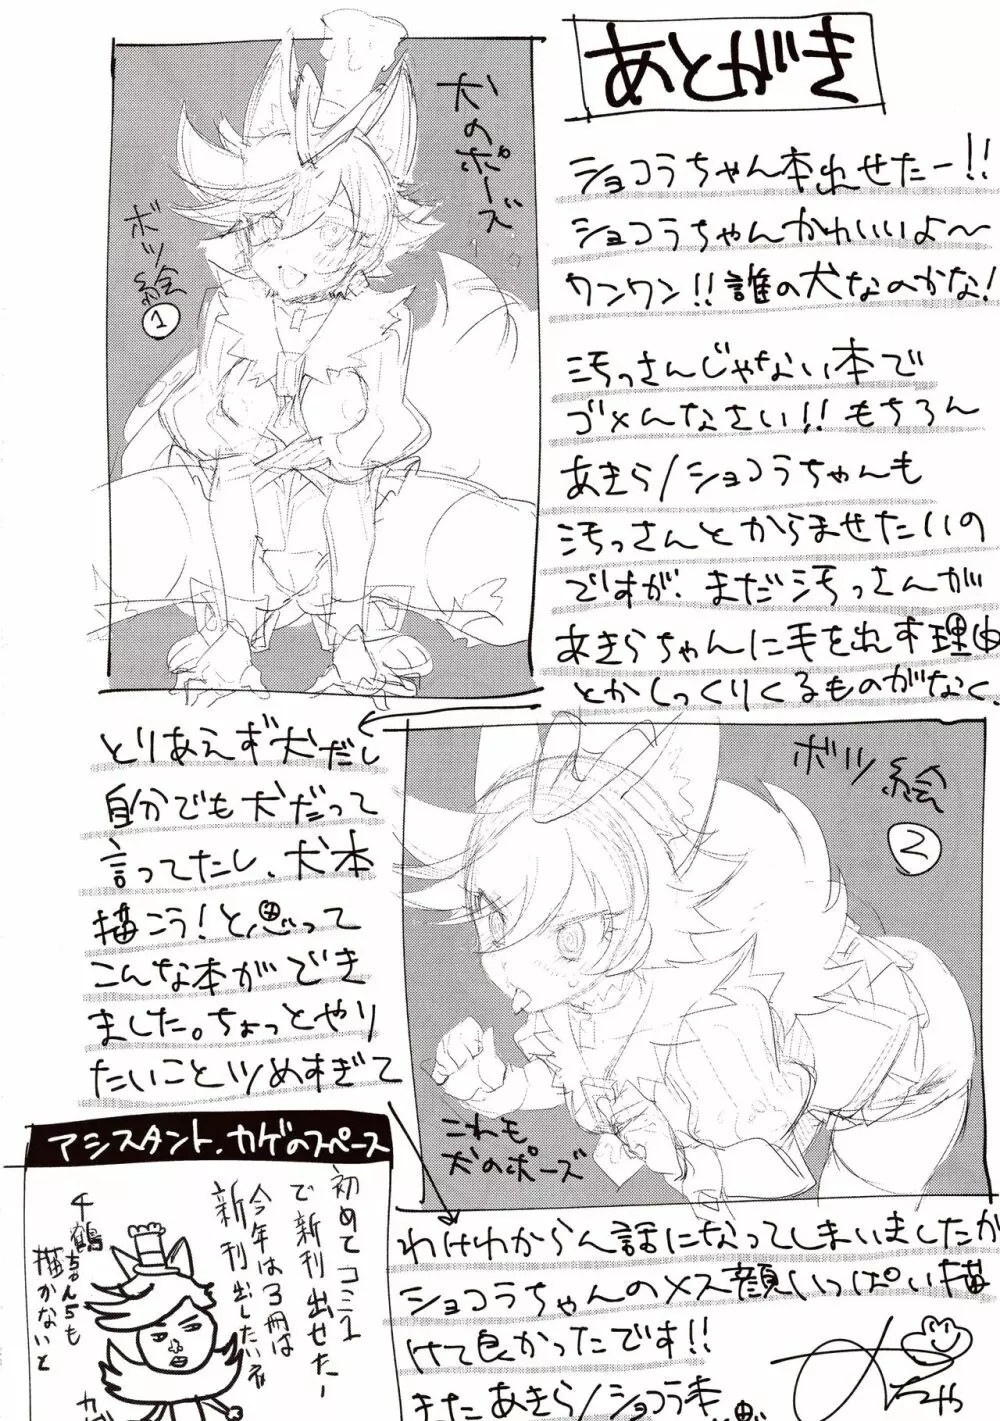 あとがき
ショコラちゃん本わせたー!!
ショコラちゃんかわいいよ〜
ワンワン!!誰の犬なのかな!
汚っさんじゃない本で
ゴメんなさい!!もちろん
あきら/ショコラちゃんも
汚っさんとからませたいの
ですが、まだ汚っさんが
あきらちゃんに毛をれす理由
とかしっくりくるものがなく、
とりあえず犬だし
自分でも犬だって
言ってたし、犬本
描こう!と思って
こんな本ができ
ました。ちょっとやり
たいことツめすぎて
わけわからん話になってしまいましたか
ショコラちゃんのメス顔いっぱい描
けて良かったです!!
またあきら/ショコラ本
犬のポーズ
ボツ絵
1
ボツ絵
2
これも
犬のポーズ
アシスタント.カゲのスペース
初めてコミ1
で新刊出せたー
今年は3冊は
新刊出したいネ
千鶴ちゃん5も
描かないと
カゲ